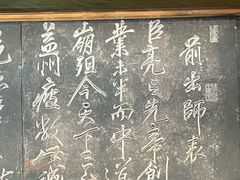 前出師表
臣亮言先帝創
業未半而中道
崩殂今天下三
益州疲敝此誠